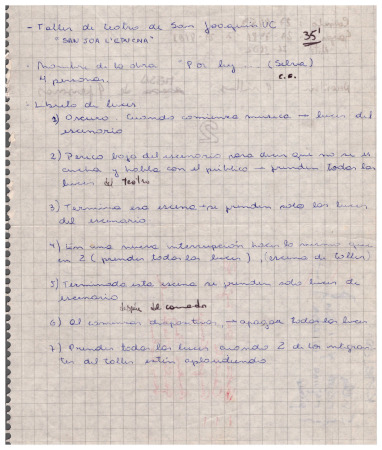 - Taller de teatro de San Joaquín UC
"SAN JOA L'ESCENA"
35'
- Nombre de la obra "Por hoy (Selva)
4 personas. C.G.
- Libreto de luces
1) Oscuro. Cuando comienza musica → luces del
escenario
2) Perico baja del escenario para decir que no se es
cucha y habla con el público → prenden todas las
luces del teatro
3) Termina esa escena → se prenden solo las luces
del escenario
4) Con una nueva interrupción hacer lo mismo que
en 2 (prender todas las luces), (escena de taller)
5) Terminada esta escena se prenden solo luces de
escenario
6) Al comenzar diapositivas, → apagar todas las luces
7) Prender todas las luces cuando 2 de los integran
tes del taller estén aplaudiendo